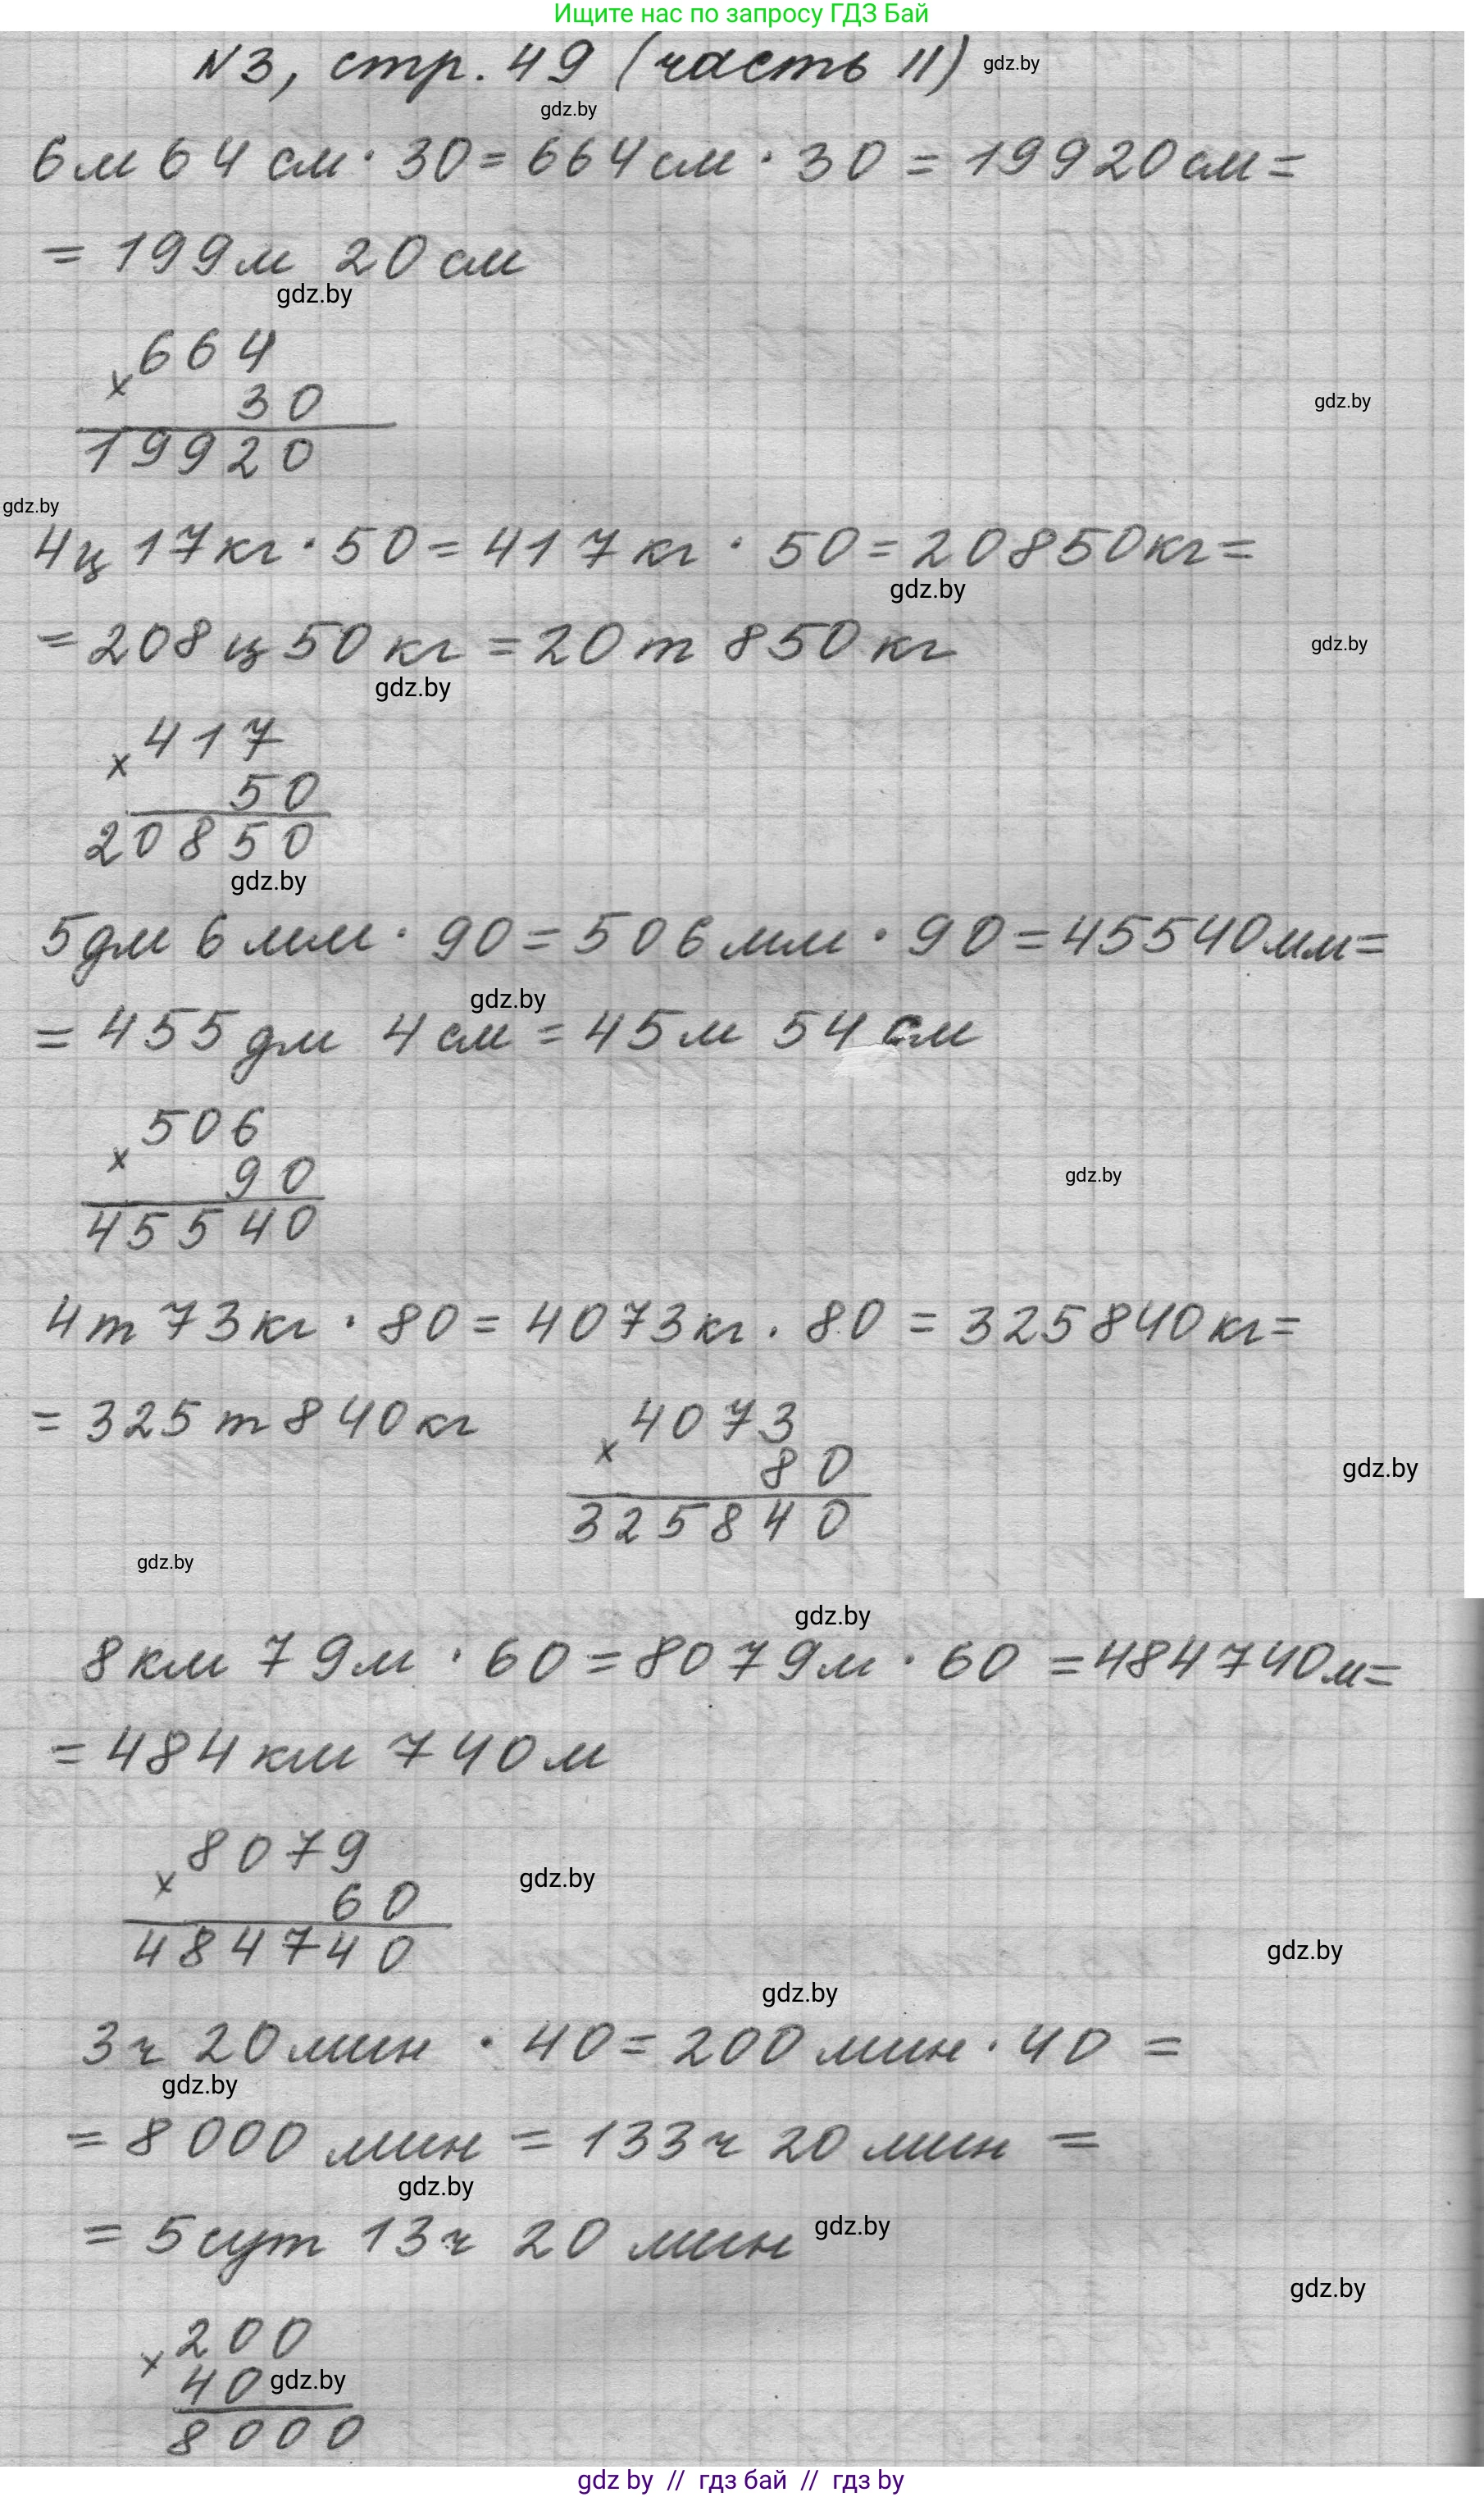 Ищите нас по запросу ГДЗ Бай
N3, стр. 49 (часть II) gdz.by
gdz.by
6м 64 см · 30 = 664 см · 30 = 19920 см =
= 199 м 20 см
gdz.by
664
× 30 gdz.by
19920
gdz.by
4ц 17 кг · 50 = 417 кг · 50 = 20850 кг =
gdz.by
= 208 ц 50 кг = 20 т 850 кг gdz.by
gdz.by
417
× 50
20850
gdz.by
5дм 6 мм · 90 = 506 мм · 90 = 45540 мм =
gdz.by
= 455 дм 4 см = 45 м 54 см
506
× 90 gdz.by
45540
4т 73 кг · 80 = 4073 кг · 80 = 325840 кг =
= 325 т 840 кг
4073
× 80 gdz.by
325840
gdz.by
gdz.by
8 км 79 м · 60 = 8079 м · 60 = 484740 м =
= 484 км 740 м
8079
× 60 gdz.by
484740 gdz.by
gdz.by
3ч 20 мин · 40 = 200 мин · 40 =
gdz.by
= 8000 мин = 133 ч 20 мин =
gdz.by
= 5 сут 13 ч 20 мин gdz.by
gdz.by
200
× 40 gdz.by
8000
gdz by // гдз бай // гдз by